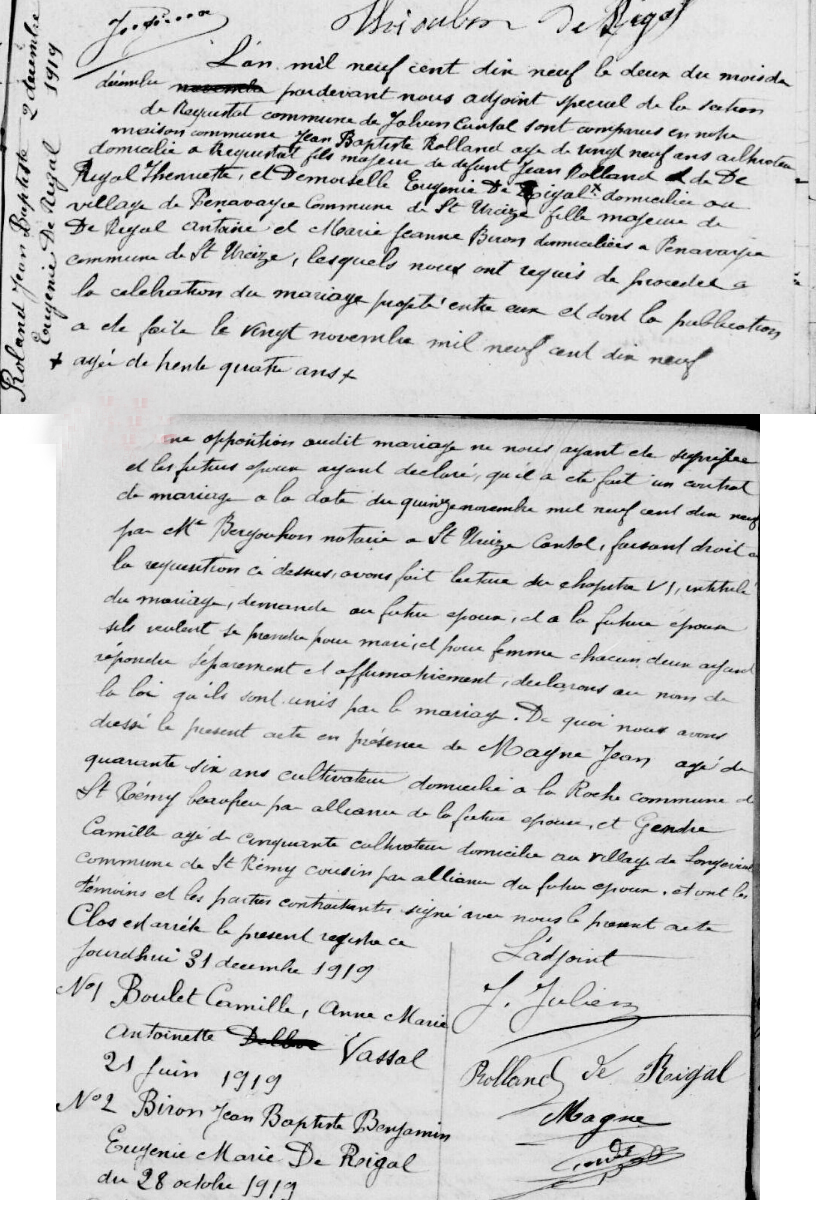 de Rigal
Roland Jean Baptiste 2 décembre
Eugenie De Rigal 1919
L'an mil neuf cent dix neuf le deux du mois de
décembre novembre pardevant nous adjoint special de la section
de Requistat commune de Jabrun Cantal sont comparus en notre
maison commune Jean Baptiste Rolland age de vingt neuf ans cultivateur
domicilié a Requistat fils majeur de defunt Jean Rolland & de De
Rigal Henriette, et Demoiselle Eugenie De Rigal x domiciliée au
village de Penavayre Commune de St Urcize fille majeure de
De Rigal Antoine et Marie Jeanne Biron domiciliés a Penavayre
commune de St Urcize, lesquels nous ont requis de proceder a
la celebration du mariage projeté entre eux et dont la publication
a ete faite le vingt novembre mil neuf cent dix neuf
x agée de trente quatre ans x
une opposition audit mariage ne nous ayant ete signifiée
et les futurs epoux ayant declaré, qu'il a ete fait un contrat
de mariage a la date du quinze novembre mil neuf cent dix neuf
par Me notaire a St Urcize Cantal, faisant droit a
la requisition ci dessus, avons fait lecture du chapitre VI, intitulé
du mariage, demande au futur epoux, et a la future épouse
sils veulent se prendre pour mari, et pour femme chacun deux ayant
répondu séparement et affirmativement, declarons au nom de
la loi qu'ils sont unis par le mariage. De quoi nous avons
dressé le present acte en présence de Magne Jean agé de
quarante six ans cultivateur domicilié a la Roche commune de
St Rémy beaufrere par alliance de la future epouse, et Gendre
Camille agé de cinquante cultivateur domicilié au village de
commune de St Rémy cousin par alliance du futur epoux. et ont les
témoins et les parties contractantes signé avec nous le present acte
Clos et arrété le present registre ce
jourdhui 31 decembre 1919
No 1 Boulet Camille, Anne Marie
Antoinette Vassal
21 Juin 1919
No 2 Biron Jean Baptiste Benjamin
Eugenie Marie De Rigal
du 28 octobre 1919
L'adjoint
J. Julien
Rolland de Rigal
Magne